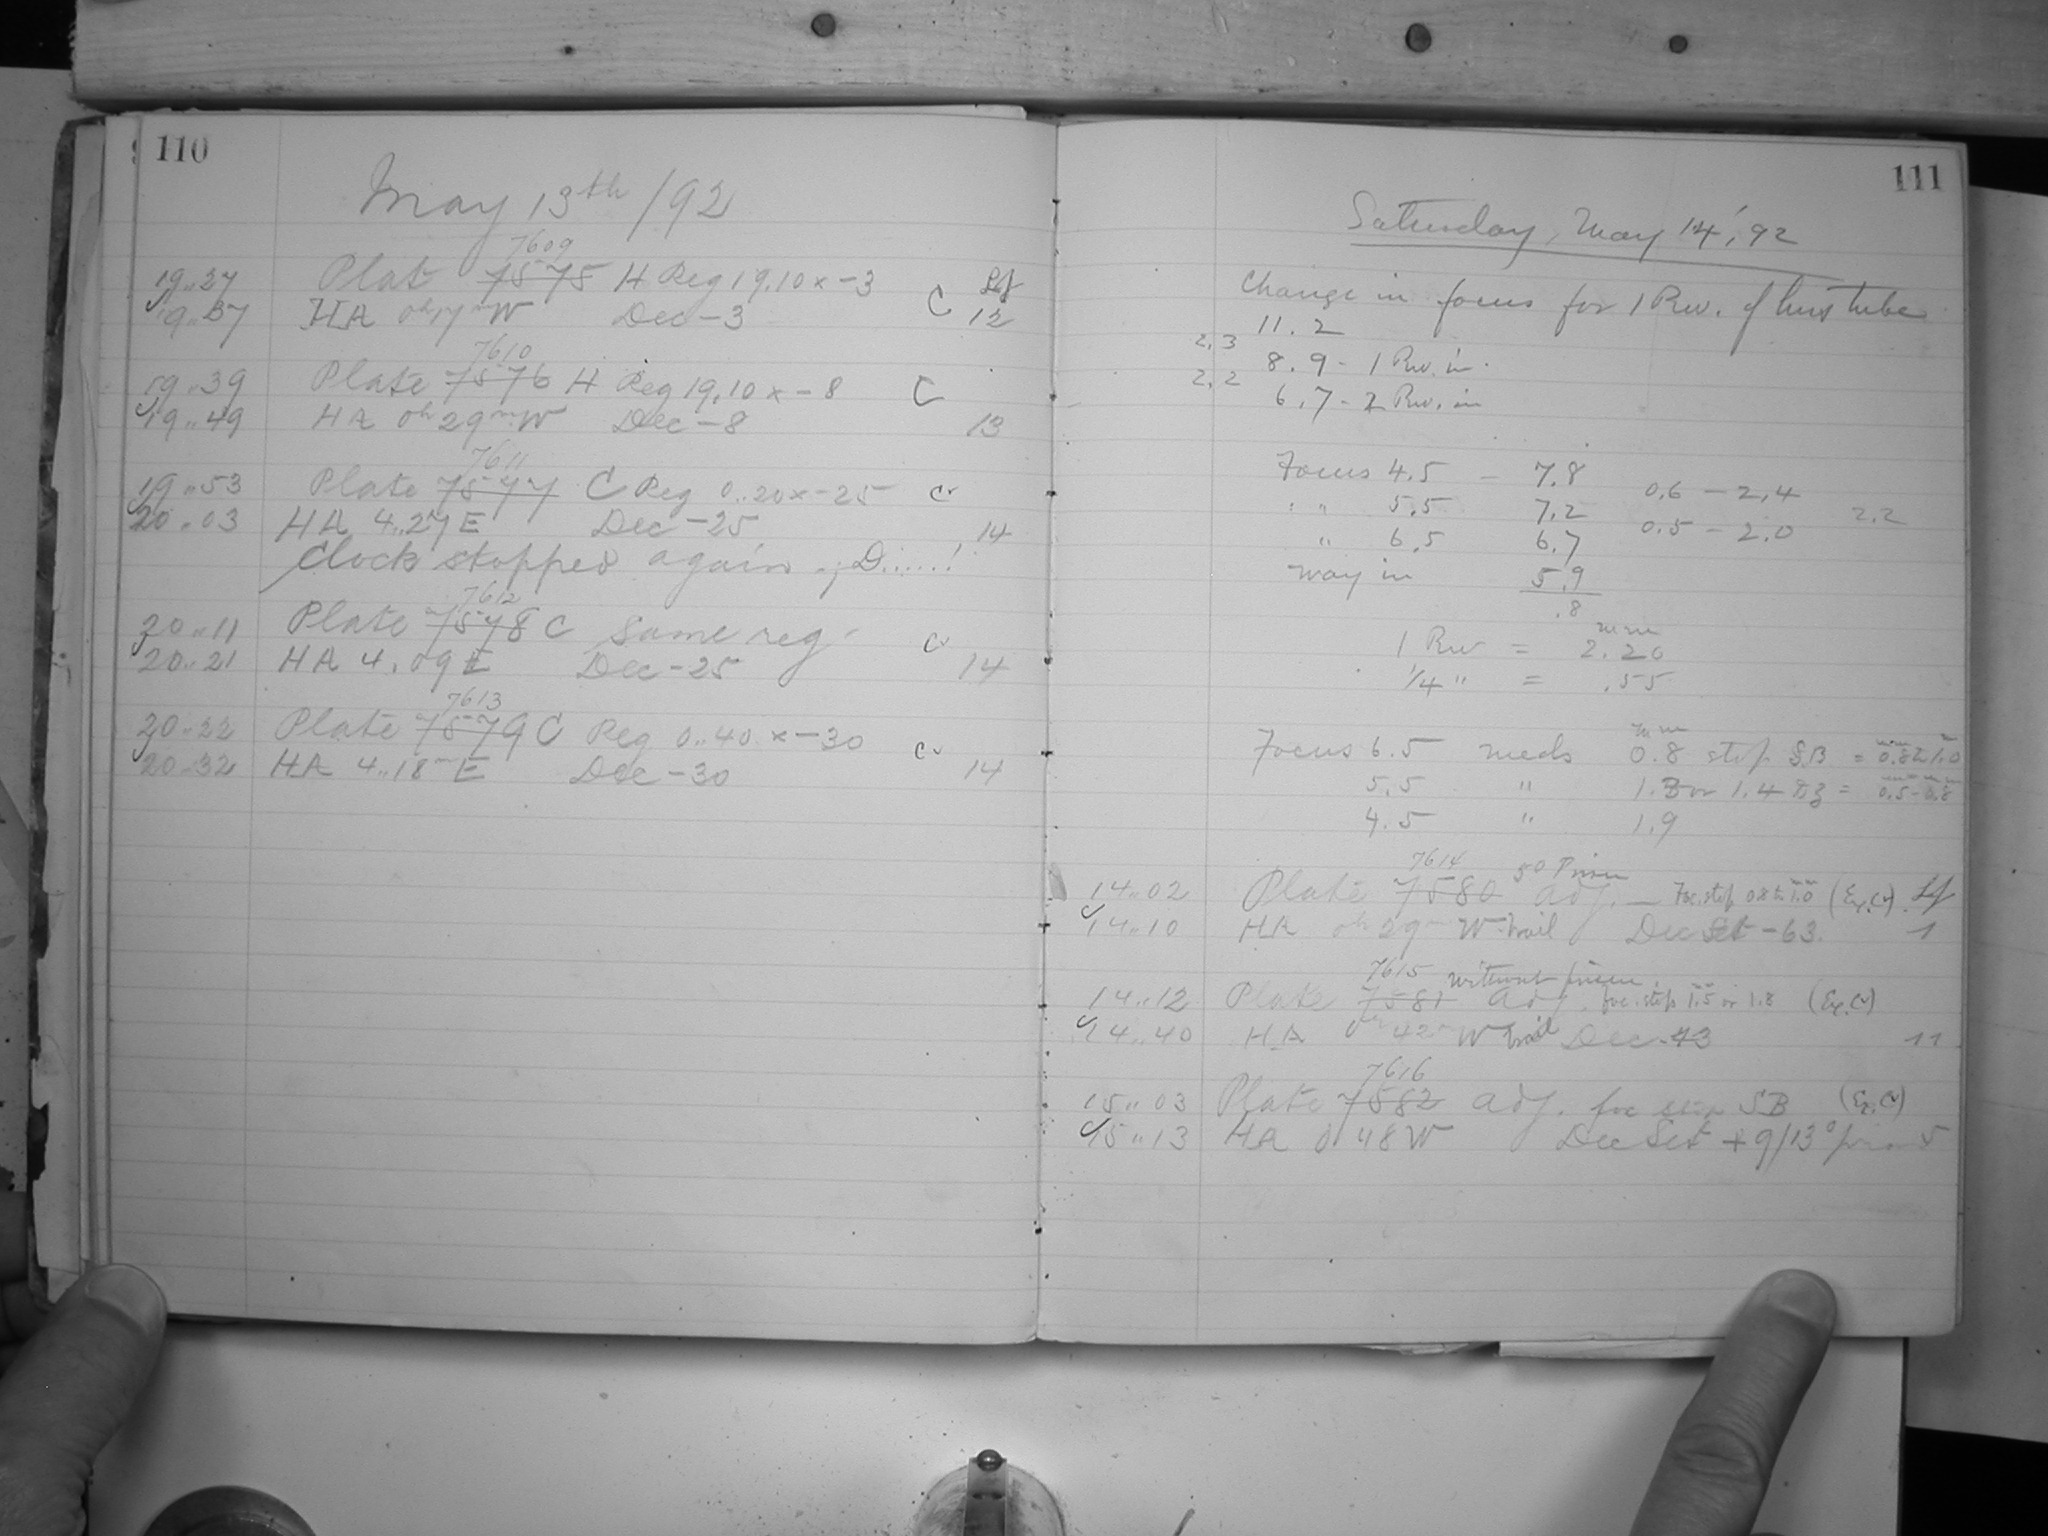 110
May 13th /92
7609
19..27 Plat 7575 H Reg 19.10 x -3
19..37 HA 0h17m W Dec -3 C 12
7610
19..39 Plate 7576 H Reg 19.10 x -8 C
19..49 HA 0h 29m W Dec -8 13
7611
19..53 Plate 7577 C Reg 0..20 x -25 C
20..03 HA 4..27 E Dec -25 14
Clock stopped again .. D......!
7612
20..11 Plate 7578 C Same reg C
20..21 HA 4.09 E Dec -25 14
7613
20..22 Plate 7579 C Reg 0..40 x -30 C
20..32 HA 4..18m E Dec -30 14
111
Saturday, May 14, '92
Change in focus for 1 Rev. of lens tube
11.2
2.3
8.9 - 1 Rev. in.
2.2
6.7 - 2 Rev. in
Focus 4.5 - 7.8 0.6 - 2.4
" " 5.5 7.2 0.5 - 2.0 2.2
" 6.5 6.7
way in 5.9
.8
mm
1 Rev = 2.20
1/4 " = .55
mm
Focus 6.5 needs 0.8 stop S.B = 0.8 to 1.0
5.5 " 1.3 or 1.4 = 0.5 - 0.8
4.5 " 1.9
7614 5° Prism
14..02 Plate 7580 adj. — Foc. stop 0.8 to 1.0 (Ex. C)
14..10 HA 0h 29m W trail Dec Set -63. 1
7615 without prism.
14..12 Plate 7581 adj. foc. stop 1.5 or 1.8 (Ex. C)
14..40 HA 0h 42m W trail Dec -43 11
7616
15..03 Plate 7582 adj. foc stop SB (Ex. C)
15..13 HA 0.48 W Dec Set +9/13° 5